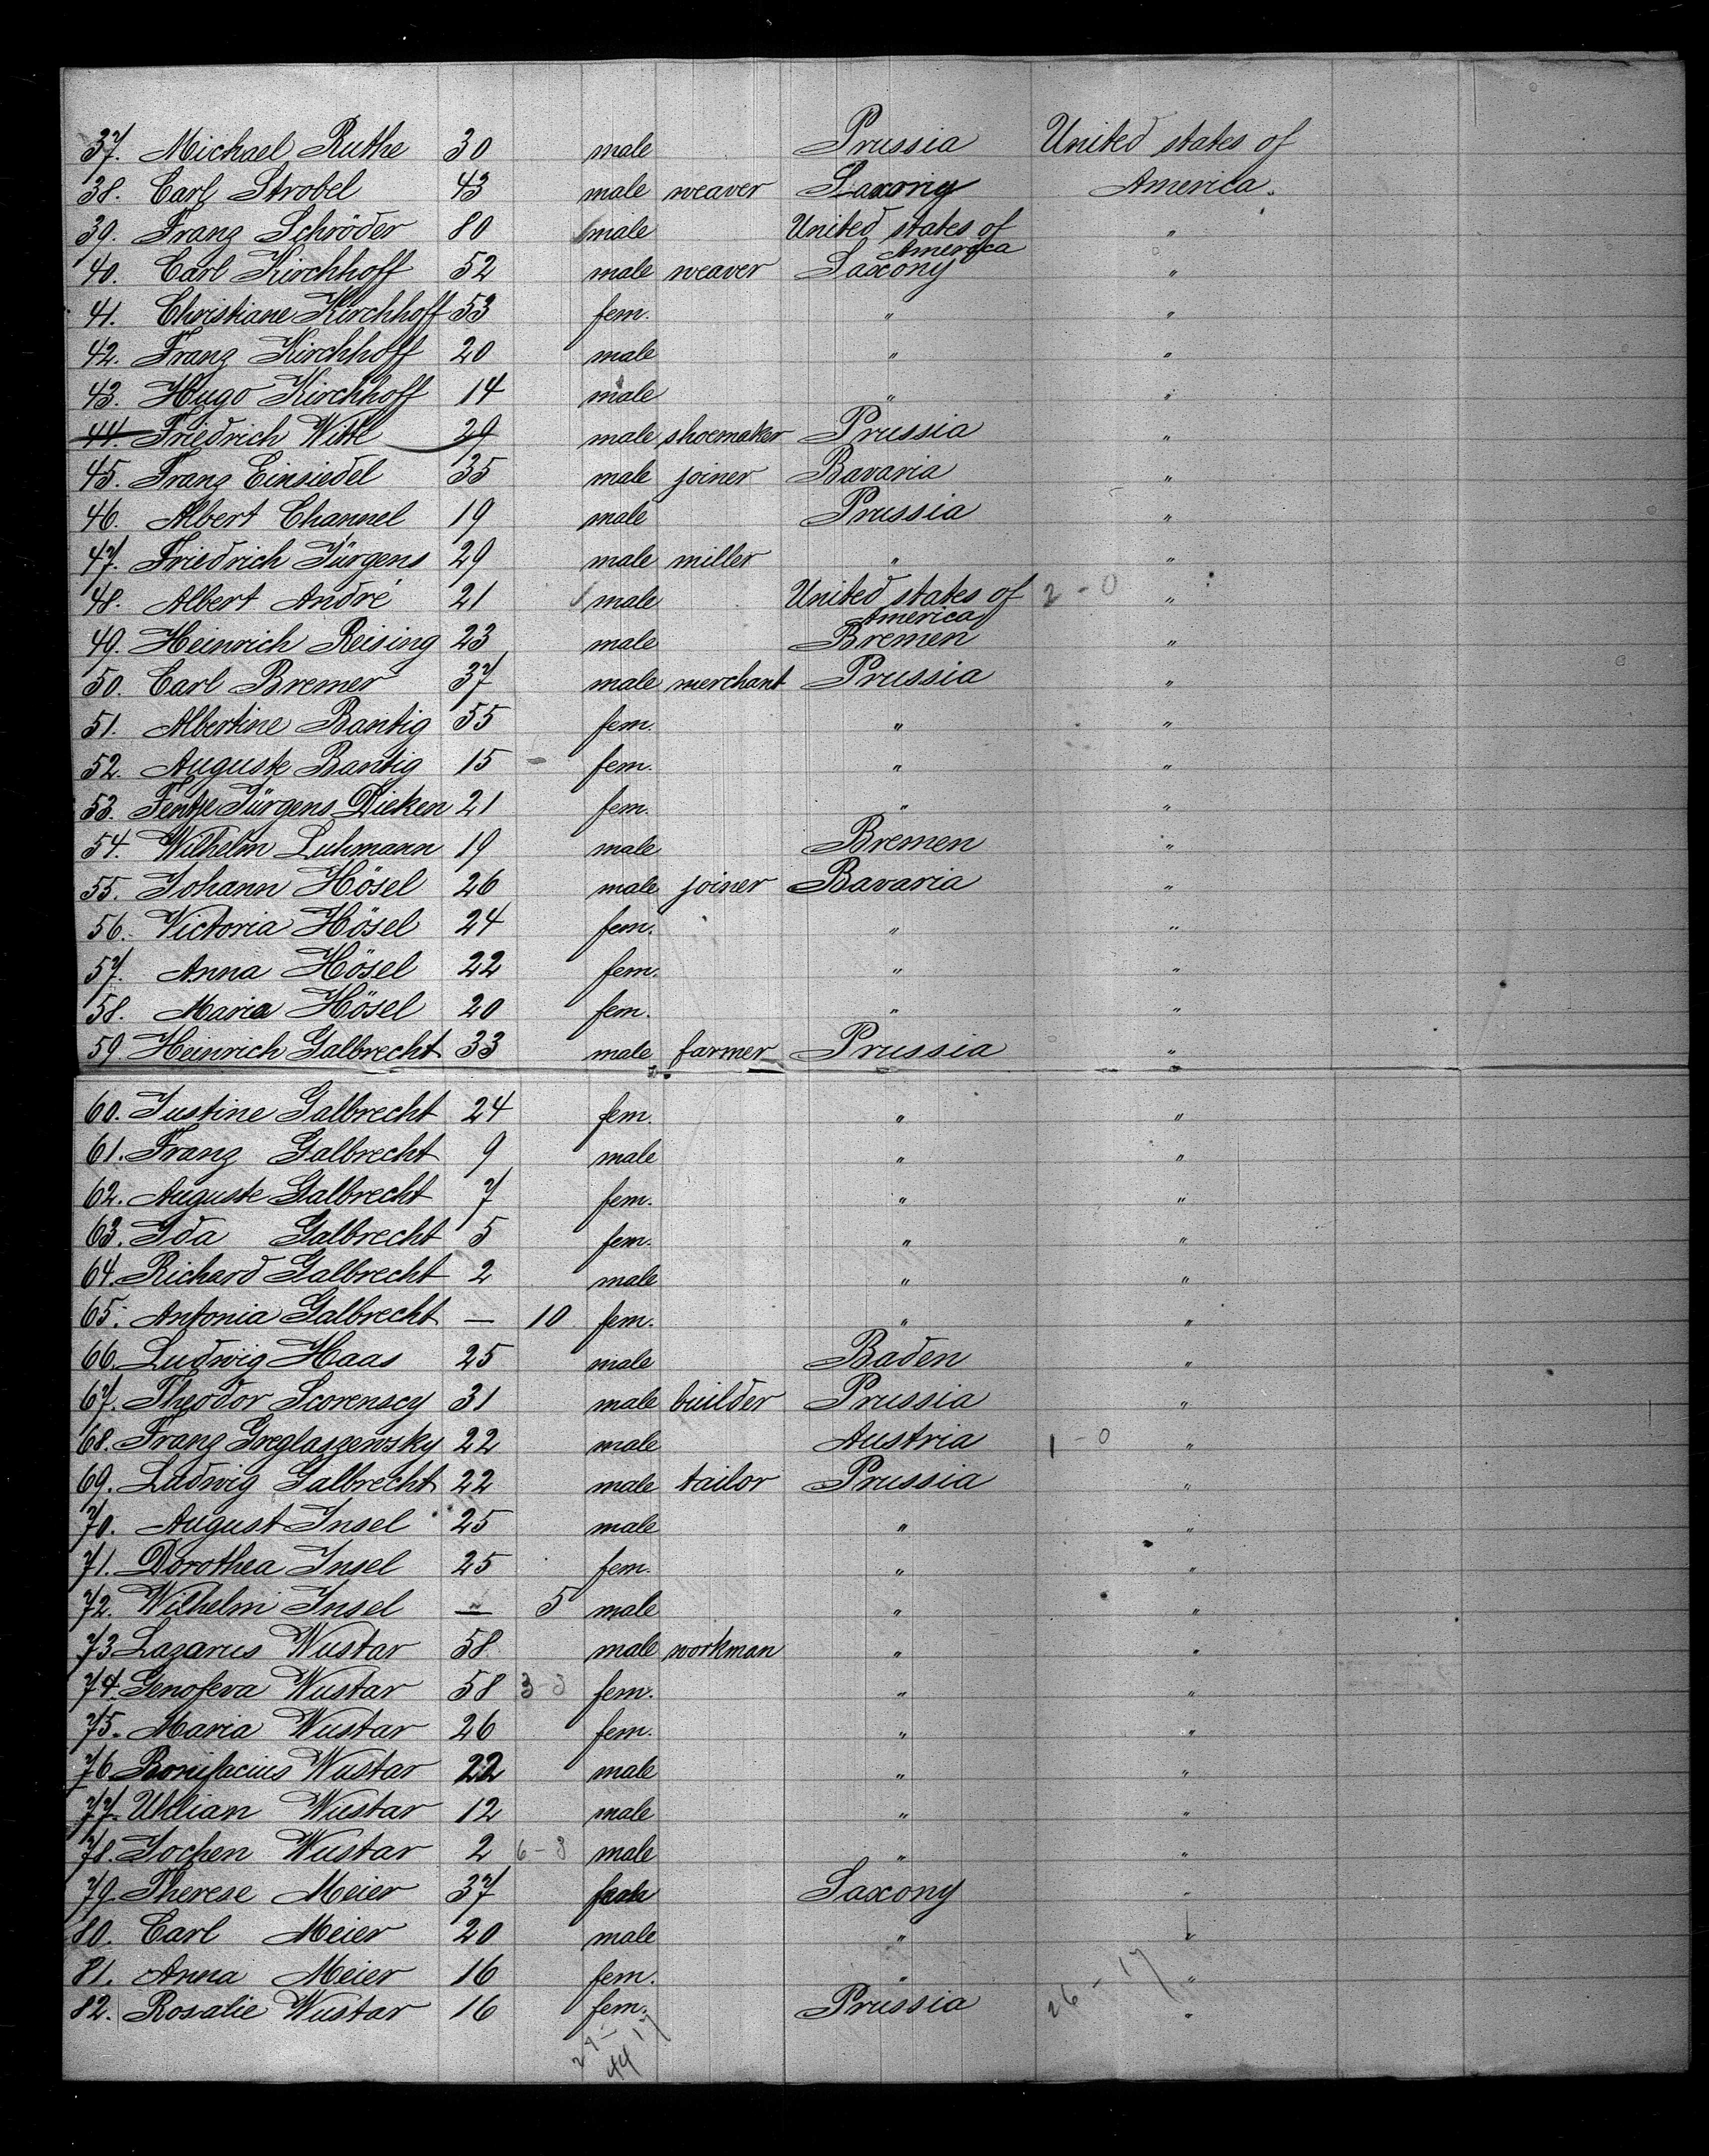 37. Michael Ruthe 30 male Prussia United states of
38. Carl Strobel 43 male weaver Saxony America.
39. Franz Schröder 80 male United states of America "
40. Carl Kirchhoff 52 male weaver Saxony "
41. Christiane Kirchhoff 53 fem. " "
42. Franz Kirchhoff 20 male " "
43. Hugo Kirchhoff 14 male " "
44. Friedrich Witte 29 male shoemaker Prussia "
45. Franz Einsiedel 35 male joiner Bavaria "
46. Albert Channel 19 male Prussia "
47. Friedrich Jürgens 29 male miller " "
48. Albert André 21 male United states of America 2-0 "
49. Heinrich Reising 23 male Bremen "
50. Carl Bremer 37 male merchant Prussia "
51. Albertine Bantig 55 fem. " "
52. Auguste Bantig 15 fem. " "
53. Fentje Jürgens Dieken 21 fem. " "
54. Wilhelm Luhmann 19 male Bremen "
55. Johann Hösel 26 male joiner Bavaria "
56. Victoria Hösel 24 fem. " "
57. Anna Hösel 22 fem. " "
58. Maria Hösel 20 fem. " "
59 Heinrich Galbrecht 33 male farmer Prussia "
60. Justine Galbrecht 24 fem. " "
61. Franz Galbrecht 9 male " "
62. Auguste Galbrecht 7 fem. " "
63. Ida Galbrecht 5 fem. " "
64. Richard Galbrecht 2 male " "
65. Antonia Galbrecht — 10 fem. " "
66. Ludwig Haas 25 male Baden "
67. Theodor Scorenscy 31 male builder Prussia "
68. Franz Greglaszewsky 22 male Austria 1-0 "
69. Ludwig Galbrecht 22 male tailor Prussia "
70. August Insel 25 male " "
71. Dorothea Insel 25 fem. " "
72. Wilhelm Insel — 5 male " "
73 Lazarus Wustar 58 male workman " "
74. Genofeva Wustar 58 3-3 fem. " "
75. Maria Wustar 26 fem. " "
76 Bonifacius Wustar 22 male " "
77. Ullian Wustar 12 male " "
78. Jochen Wustar 2 6-3 male " "
79. Therese Meier 37 Saxony "
80. Carl Meier 20 male " "
81. Anna Meier 16 fem. " 26-17 "
82. Rosalie Wustar 16 fem. Prussia "
27-17
44